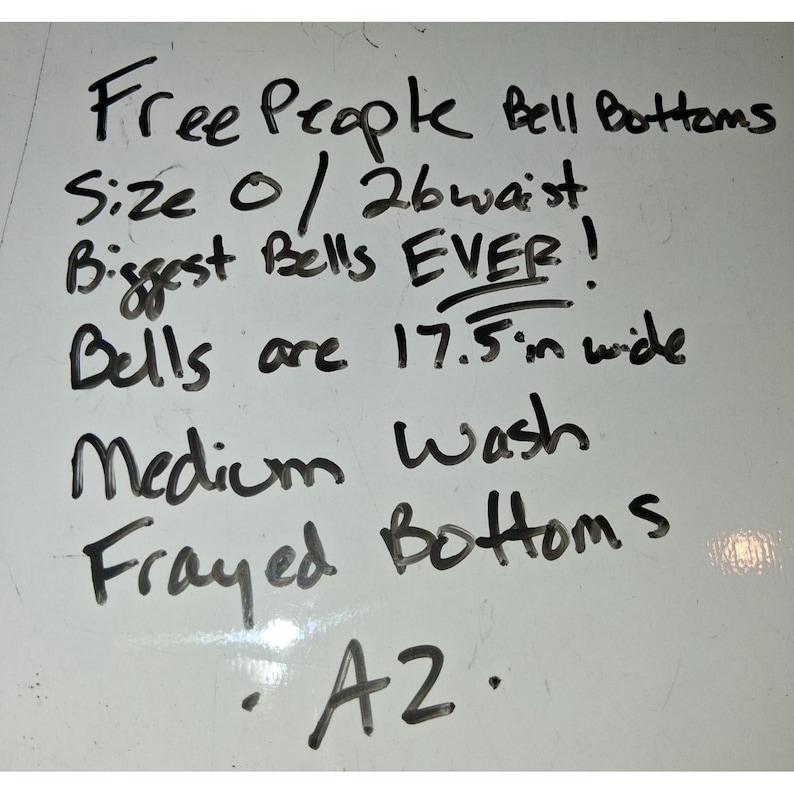 Free People Bell Bottoms
Size 0 / 26 waist
Biggest Bells EVER!
Bells are 17.5 in wide
Medium Wash
Frayed Bottoms
· A2 ·